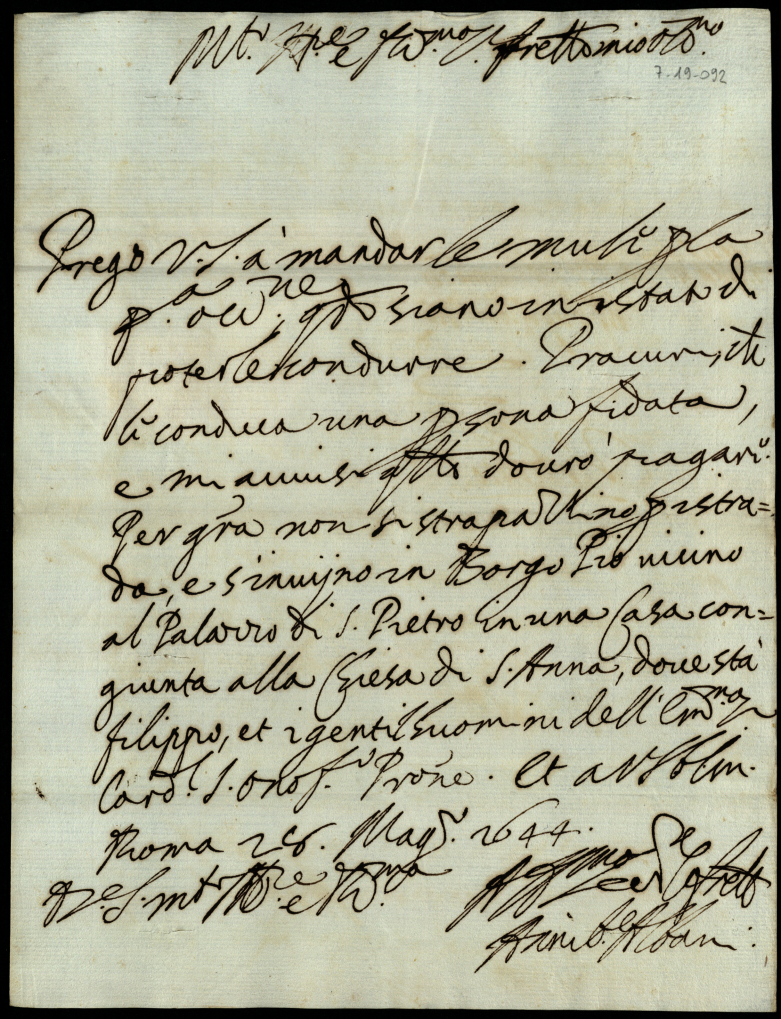 Mt. Ill.re e R.mo S.r frello mio oss.mo
7-19-092
Prego V.S. à mandar le muli p la
p.a occ.ne, q̃do siano in istato di
poterle condurre. Procuri, ch
li conduca una psona fidata,
e mi avvisi q̃to dovrò pagarli.
Per gr̃a non si strapazzino p istra=
da, e s'invijno in Borgo Pio vicino
al Palazzo di S. Pietro in una Casa con=
giunta alla Chiesa di S. Anna, dove stà
filippo, et i gentilhuomini dell' Em.mo
Card.l S. Onof.o Pr̃one. Et a V.S. b l m.
Roma 28. Magg.o 1644.
Di V.S. mt. Ill.re e R.ma
Aff.mo se.re e frello
Annib.e Albani.